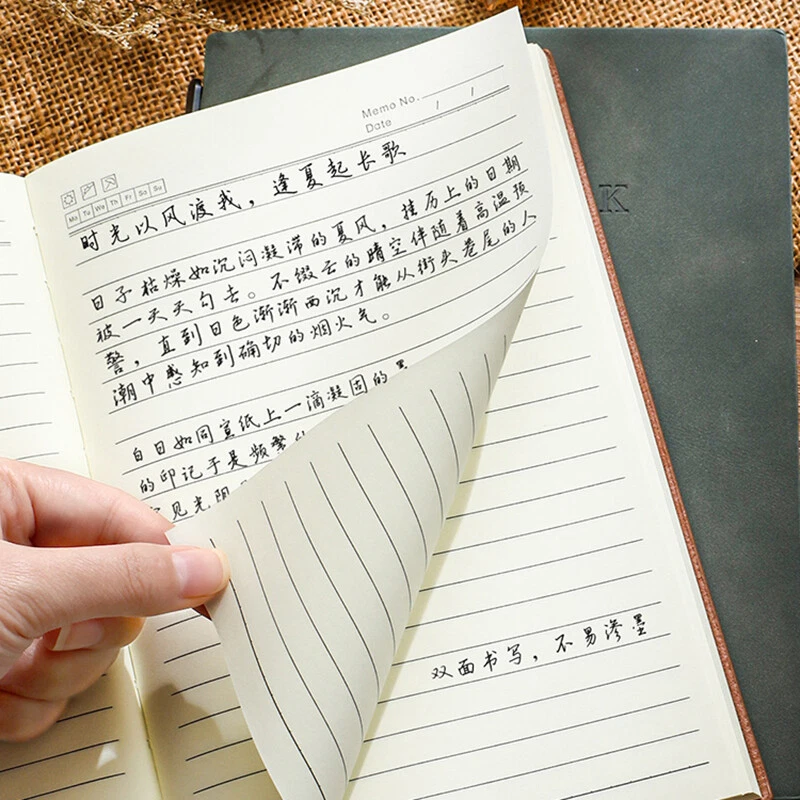 Memo No.
Date / /
Mo Tu We Th Fr Sa Su
时光以风渡我，逢夏起长歌
日子枯燥如沉闷凝滞的夏风，挂历上的日期
被一天天勾去。不缀云的晴空伴随着高温预
警，直到日色渐渐西沉才能从街头巷尾的人
潮中感知到确切的烟火气。
白日如同宣纸上一滴凝固的墨
的印记于是频繁
见光阴
双面书写，不易渗墨
K